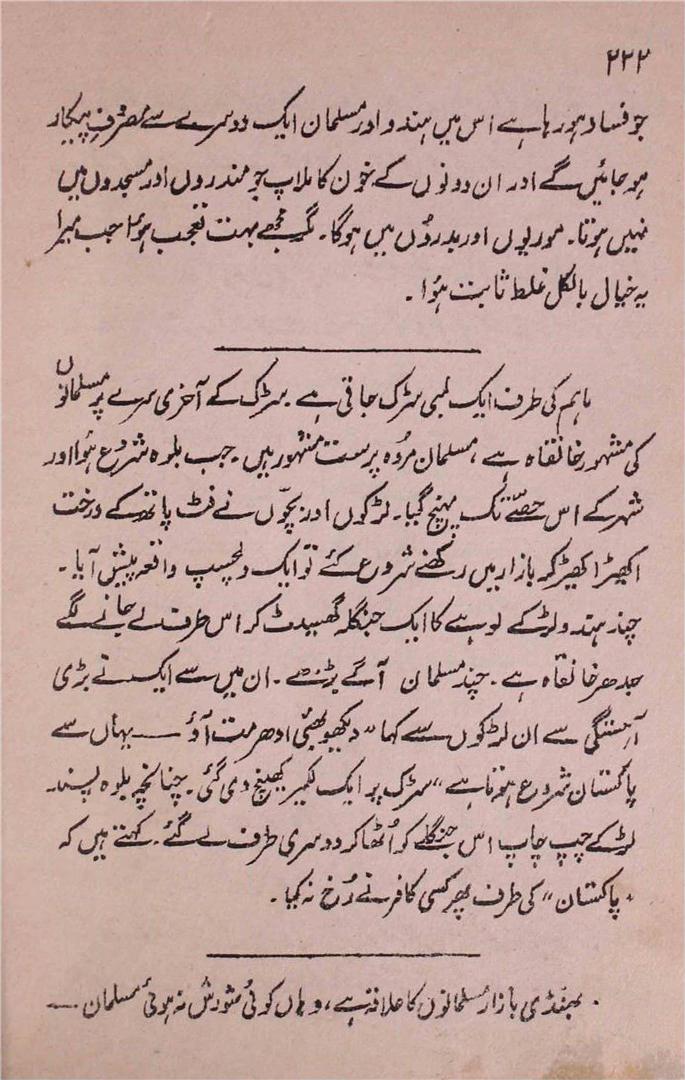 ۲۲۲
جو فساد ہو رہا ہے اس میں ہندو اور مسلمان ایک دوسرے سے مصروفِ پیکار
ہو جائیں گے اور ان دونوں کے خون کا ملاپ جو مندروں اور مسجدوں میں
نہیں ہوتا۔ موریوں اور بدرؤں میں ہوگا۔ مگر مجھے بہت تعجب ہوا جب میرا
یہ خیال بالکل غلط ثابت ہُوا۔
ماہم کی طرف ایک لمبی سڑک جاتی ہے۔ سڑک کے آخری سرے پر مسلمانوں
کی مشہور خانقاہ ہے، مسلمان مردہ پرست مشہور ہیں۔ جب بلوہ شروع ہُوا اور
شہر کے اس حصّے تک پہنچ گیا۔ لڑکوں اور بچّوں نے فٹ پاتھ کے درخت
اکھیڑ اکھیڑ کر بازار میں رکھنے شروع کئے تو ایک دلچسپ واقعہ پیش آیا۔
چند ہندو لڑکے لوہے کا ایک جنگلہ گھسیٹ کر اس طرف لے جانے لگے
جدھر خانقاہ ہے۔ چند مسلمان آگے بڑھے۔ ان میں سے ایک نے بڑی
آہستگی سے ان لڑکوں سے کہا “دیکھو بھئی ادھر مت آؤ — یہاں سے
پاکستان شروع ہوتا ہے” سڑک پر ایک لکیر کھینچ دی گئی۔ چنانچہ بلوہ پسند۔
لڑکے چپ چاپ اس جنگلے کو اُٹھا کر دوسری طرف لے گئے۔ کہتے ہیں کہ
“پاکستان” کی طرف پھر کسی کافر نے رُخ نہ کیا۔
بھنڈی بازار مسلمانوں کا علاقہ ہے، وہاں کوئی شورش نہ ہوئی مسلمان —